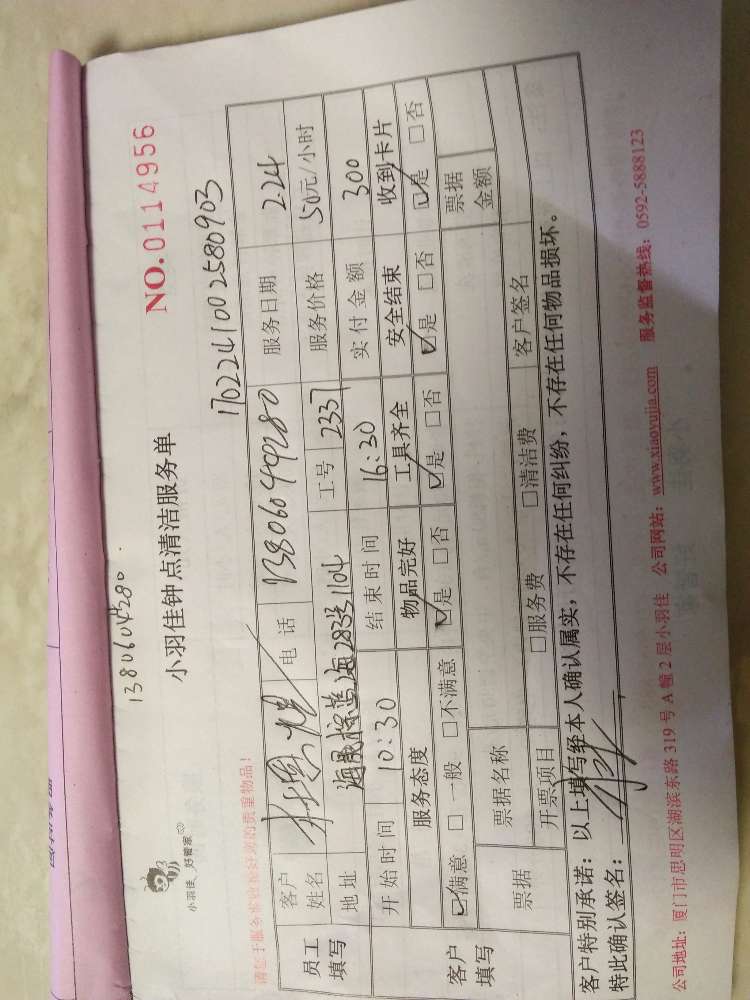 13806044280
小羽佳钟点清洁服务单
NO.0114956
小羽佳 好管家
170224100 2580903
员工填写
客户姓名
电话 13806044280
服务日期 2.24
地址 2831104
工号 2337
服务价格 50元/小时
开始时间 10:30
结束时间 16:30
实付金额 300
客户填写
服务态度 物品完好 工具齐全 安全结束 收到卡片
☑满意 □一般 □不满意 ☑是 □否 ☑是 □否 ☑是 □否 ☑是 □否
票据
票据名称
票据金额
开票项目 □服务费 □清洁费 客户签名
客户特别承诺：以上填写经本人确认属实，不存在任何纠纷，不存在任何物品损坏。
特此确认签名：
公司地址：厦门市思明区湖滨东路 319 号 A 幢 2 层小羽佳 公司网站：www.xiaoyujia.com 服务监督热线：0592-5888123